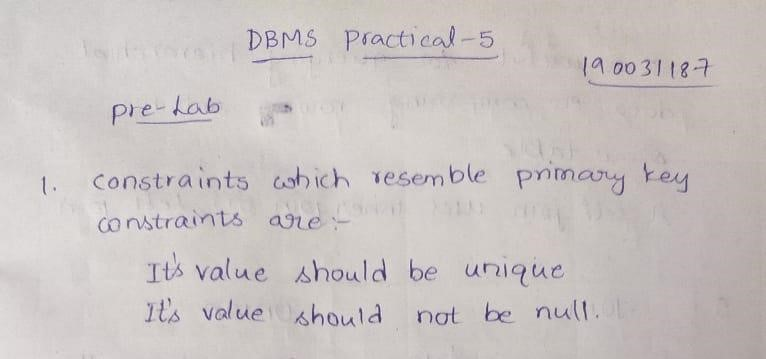 DBMS Practical-5
190031187
Pre-Lab
1. constraints which resemble primary key
constraints are:-
It's value should be unique
It's value should not be null.